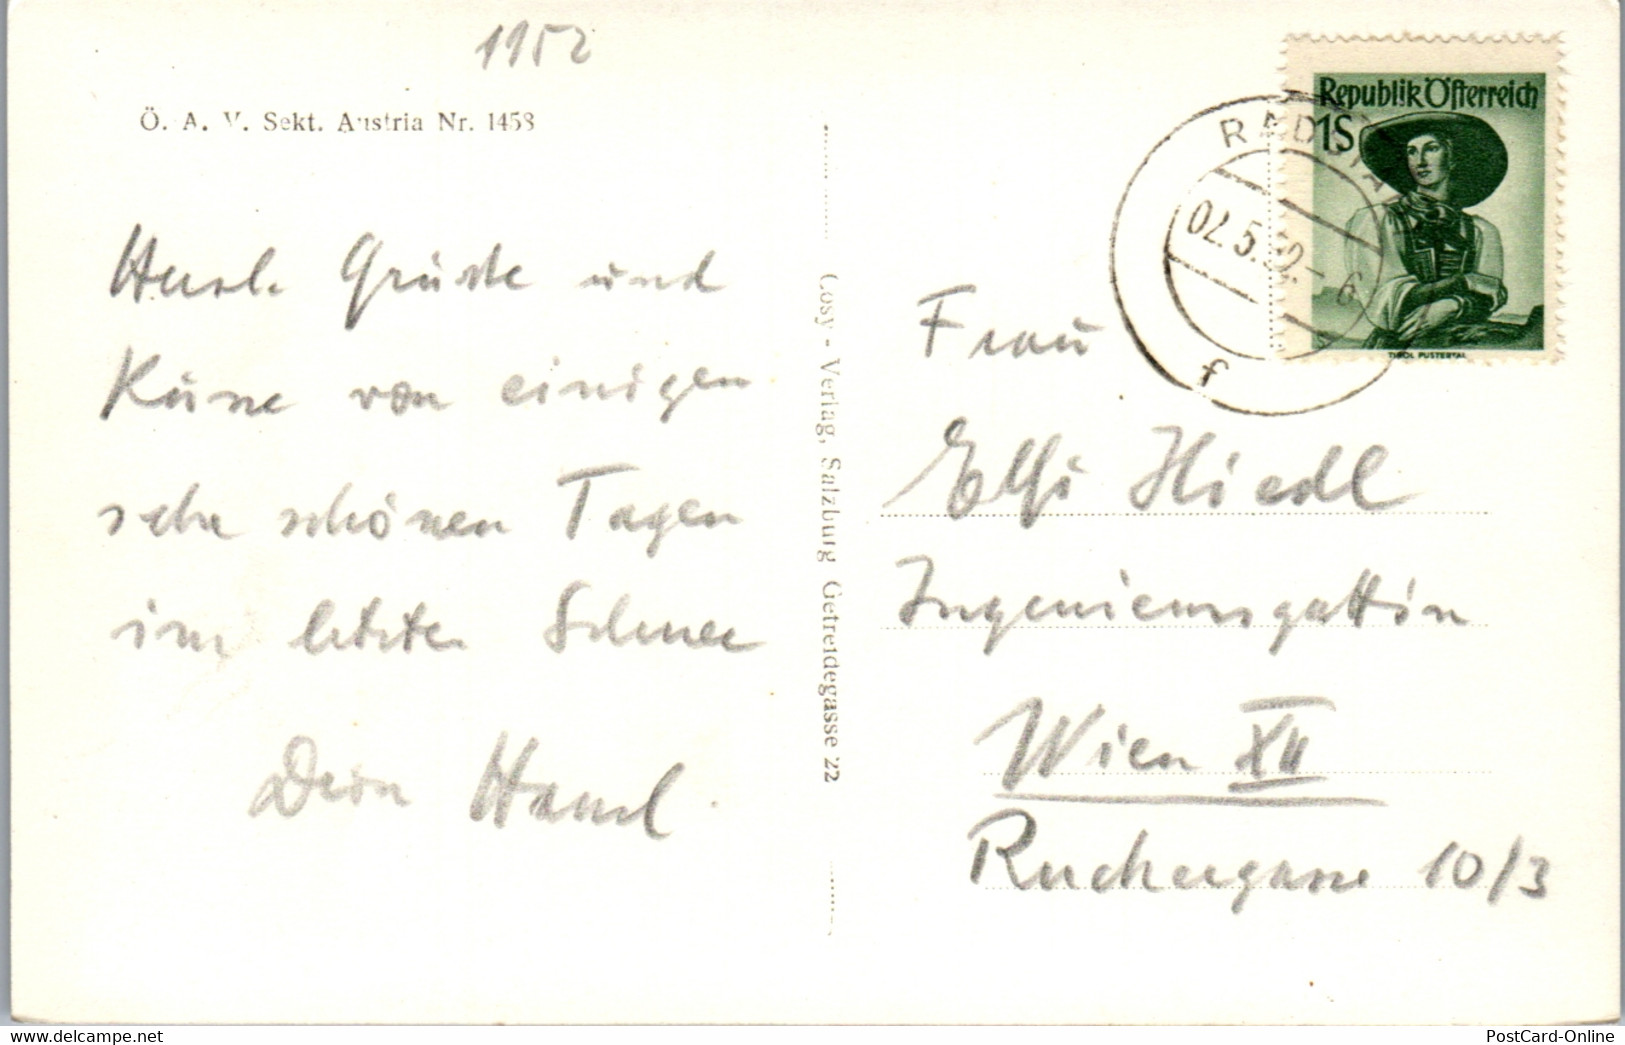 1952
Ö. A. V. Sekt. Austria Nr. 1458
Herzl. Grüße und
Küsse von einigen
sehr schönen Tagen
im letzten Schnee
Dein Hansl.
Cosy - Verlag, Salzburg Getreidegasse 22
Republik Österreich
1S
TIROL PUSTERTAL
RADSTA
02.5.52.- 6
f
Frau
Elfi Hiedl
Ingenieursgattin
Wien XII
Ruckergasse 10/3
www.delcampe.net
PostCard-Online